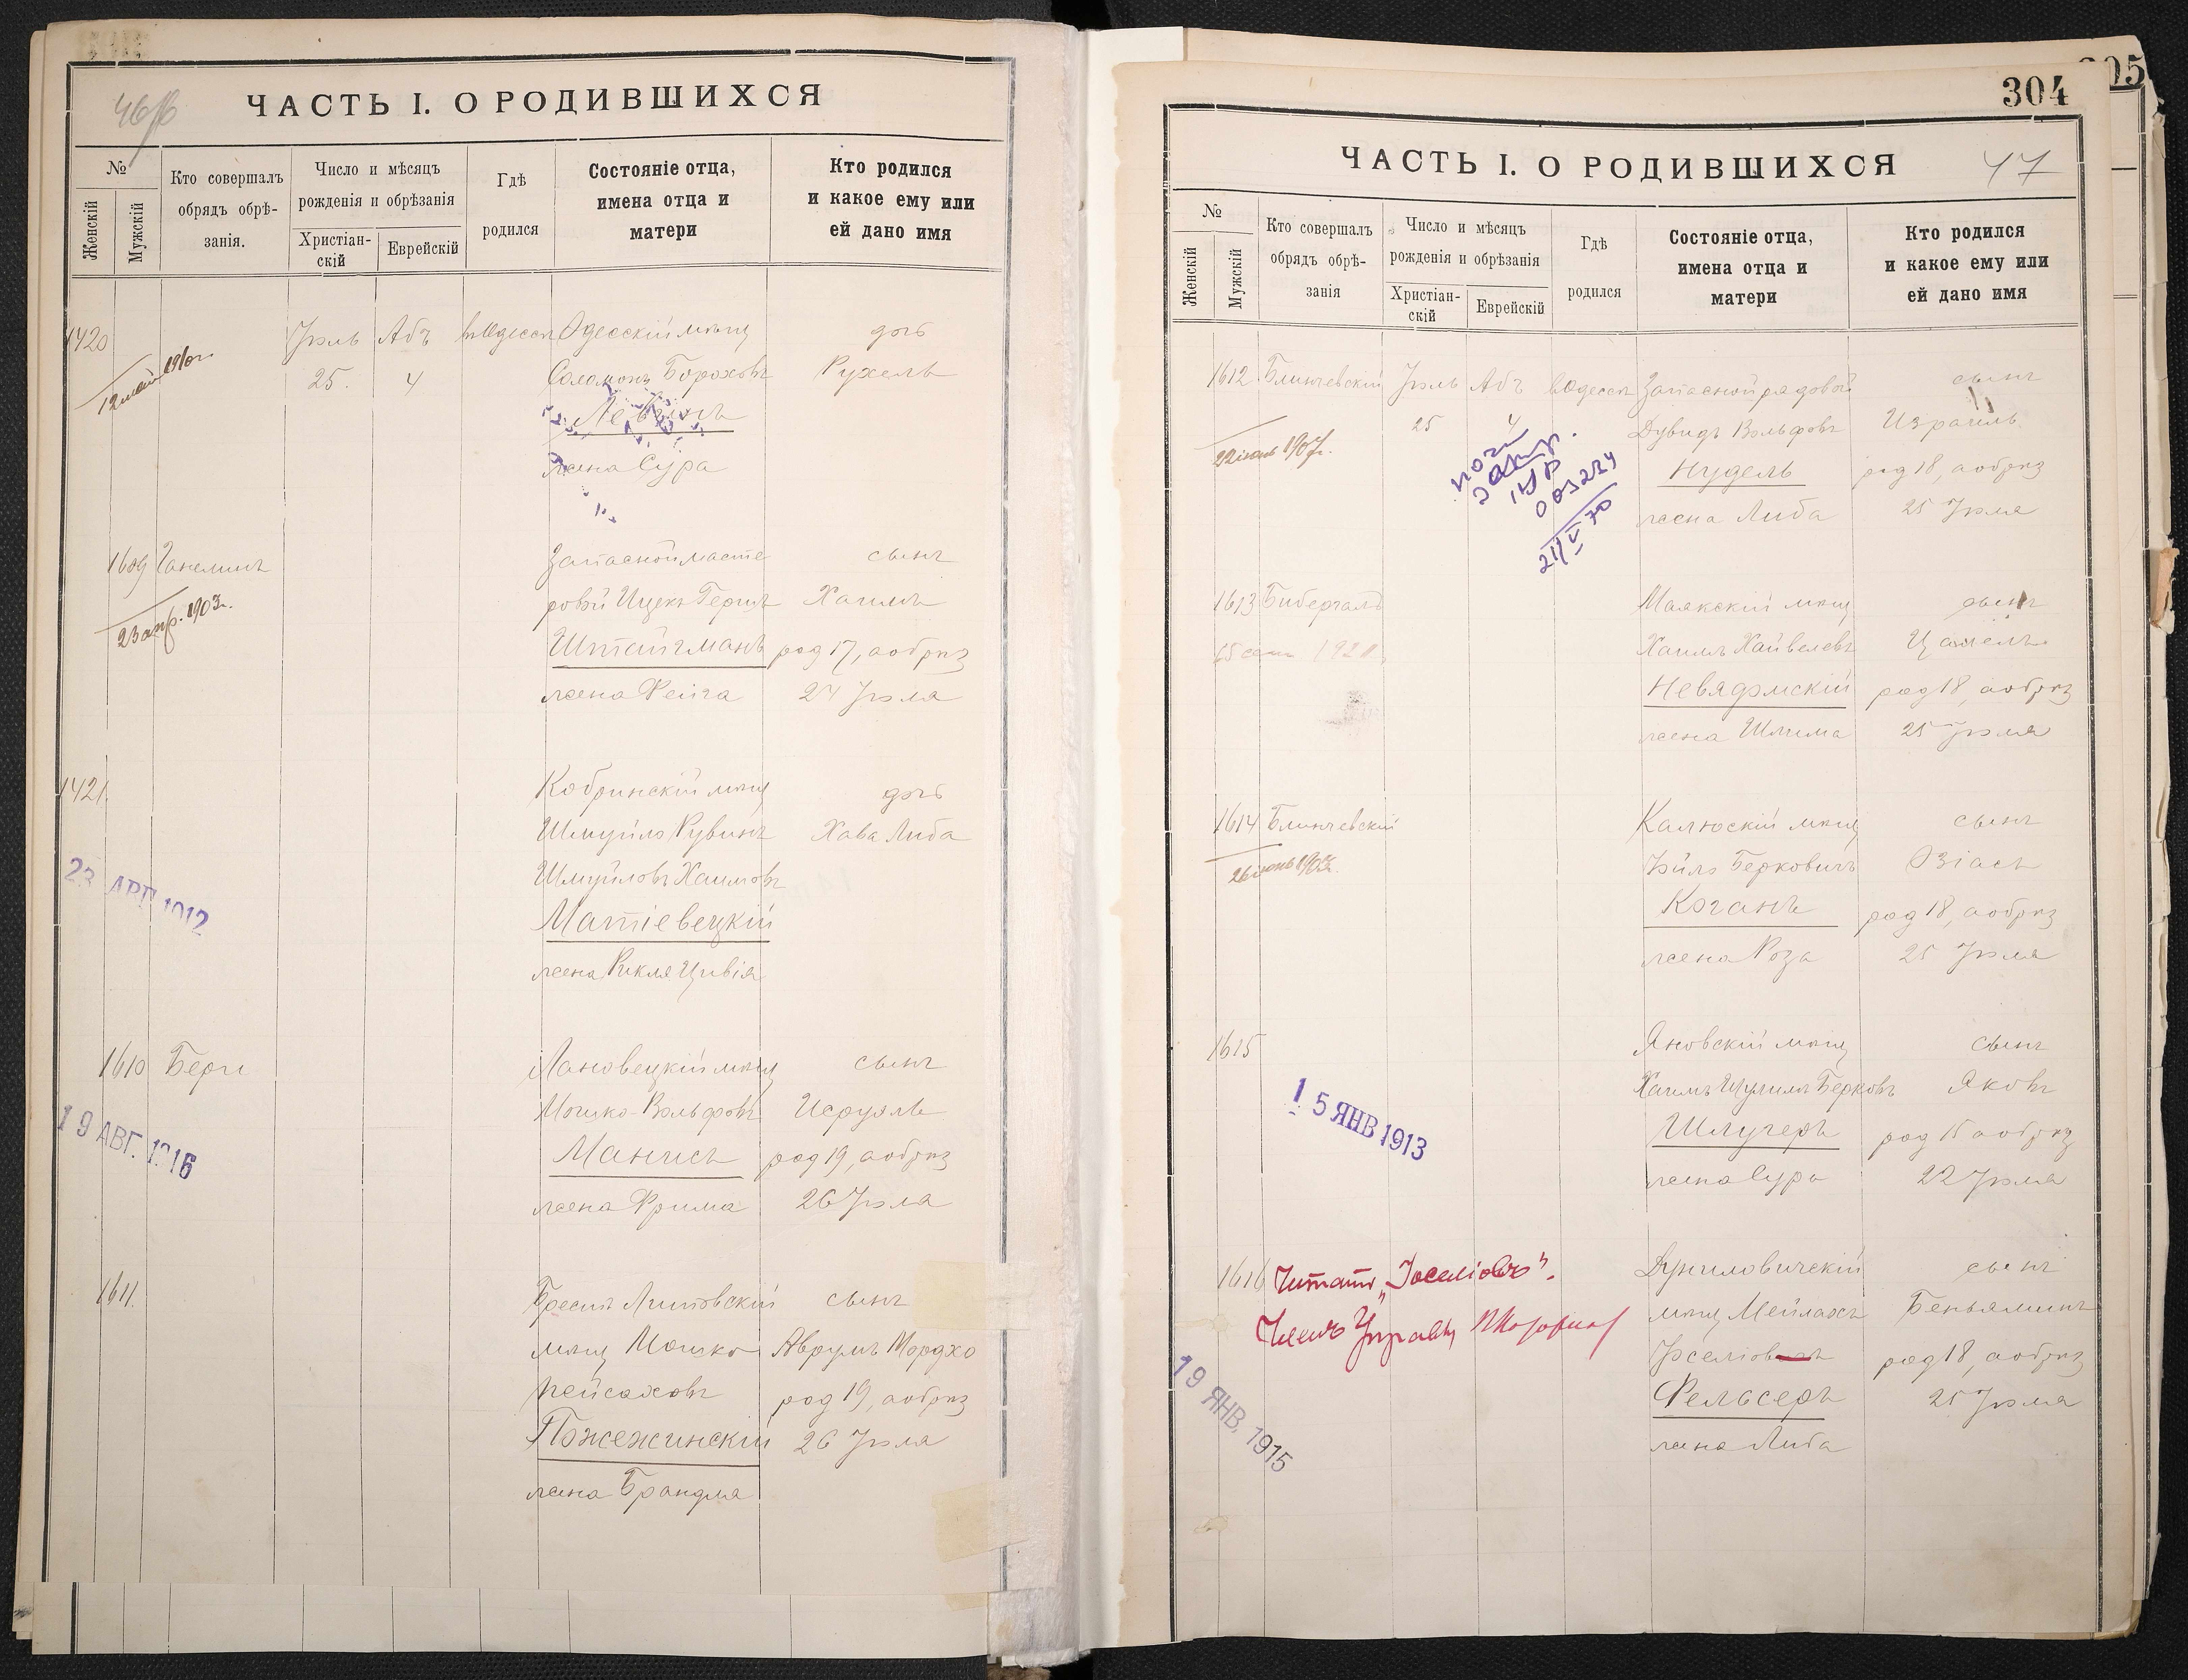 46об
ЧАСТЬ I. О РОДИВШИХСЯ
№
Женскій
Мужскій
Кто совершалъ
обрядъ обрѣ-
занія.
Число и мѣсяцъ
рожденія и обрѣзанія
Христіан-
скій
Еврейскій
Гдѣ
родился
Состояніе отца,
имена отца и
матери
Кто родился
и какое ему или
ей дано имя
1420
Іюль
Абъ
Одесскій мѣщ
дочь
25.
4
Соломонъ Бороховъ
Рухель
жена Сура
1609
Ганелинъ
Запасной масте
сынъ
23 апр. 1903г.
ровой Ицекъ Гершъ
Хаимъ
Штайгманъ
род 17, а обрѣз
жена Фейга
24 Іюля
1421.
Кобринскій мѣщ
дочь
Шмуйло Рувинъ
Хава Либа
Шмуйловъ Хаимовъ
23 АВГ 1912
Матіевецкій
жена Рикля Цивія
1610
Бери
Лановецкій мѣщ
сынъ
Мошко-Вольфовъ
Исруэль
19 АВГ. 1916
Манисъ
род 19, а обрѣз
жена Фрима
26 Іюля
1611.
Брестъ Литовскій
сынъ
мѣщ Мошко
Аврумъ Мордхо
Пейсаховъ
род 19, а обрѣз
Пожежинскій
26 Іюля
жена Брандля
304
305
ЧАСТЬ I. О РОДИВШИХСЯ
47
№
Женскій
Мужскій
Кто совершалъ
обрядъ обрѣ-
занія
Число и мѣсяцъ
рожденія и обрѣзанія
Христіан-
скій
Еврейскій
Гдѣ
родился
Состояніе отца,
имена отца и
матери
Кто родился
и какое ему или
ей дано имя
1612
Блинчевскій
Іюль
Абъ
въ Одессѣ
Запасной рядовой
сынъ
25
4
Дувидъ Вольфовъ
Израиль
Нудель
род 18, а обрѣз
жена Либа
25 Іюля
003234
21/V 70
1613
Бибергалъ
Маякскій мѣщ
сынъ
Хаимъ Хайвелевъ
Невядомскій
род 18, а обрѣз
жена Шлима
25 Іюля
1614
Блинчевскій
Калюскій мѣщ
сынъ
Іойлъ Берковичъ
Озіасъ
Коганъ
род 18, а обрѣз
жена Роза
25 Іюля
1615
Яновскій мѣщ
сынъ
Хаимъ Шулимъ Берковъ
Яковъ
15 ЯНВ 1913
Шлугеръ
род 15 а обрѣз
жена Сура
22 Іюля
1616
Читать „Іоселіовъ".
Дуниловичскій
сынъ
Членъ Управы
мѣщ Мейлахъ
Беньяминъ
род 18, а обрѣз
19 ЯНВ. 1915
Фельсеръ
25 Іюля
жена Либа